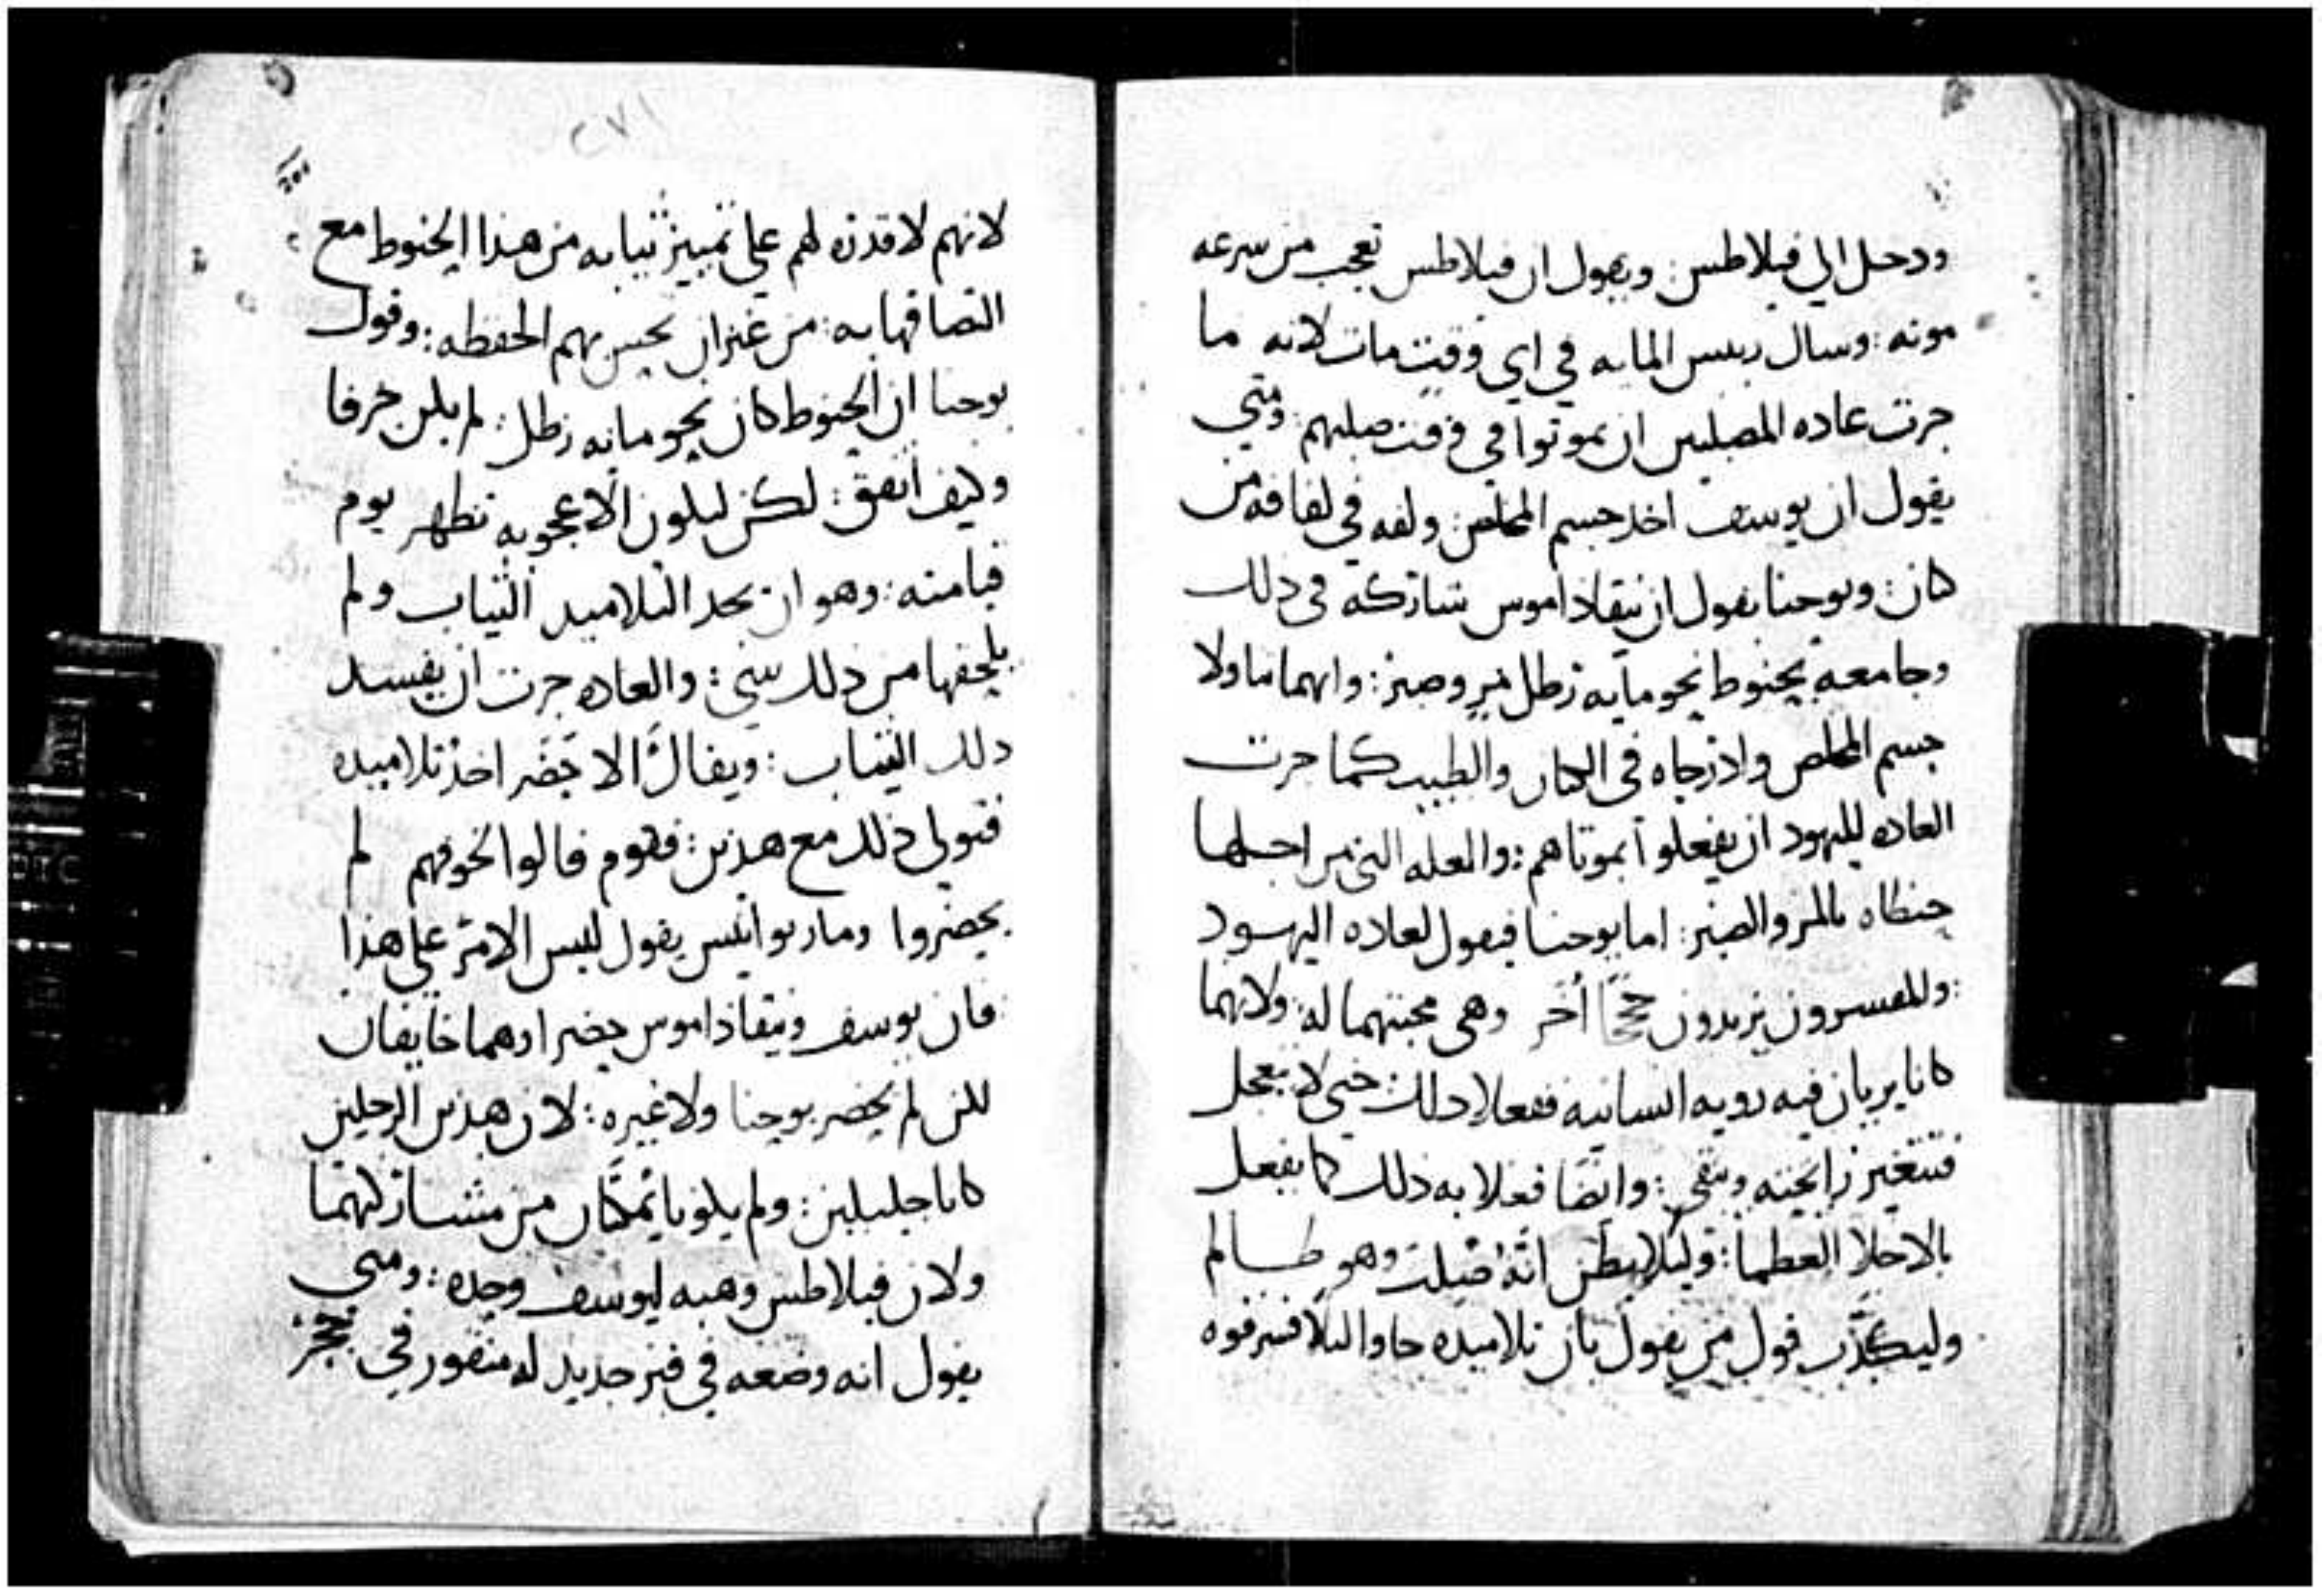 ودخل الي فيلاطس: ويقول ان فيلاطس تعجب من سرعه
موته: وسال رييس المايه في اي وقت مات لانه ما
جرت عاده المصلبين ان يموتوا في وقت صلبهم: ومتي
يقول ان يوسف اخد جسم المخلص: ولفه في لفافه من
كان: ويوحنا يقول ان نيقاذاموس شاركه في ذلك
وجا معه بحنوط نحو مايه رطل مر وصبر: وانهما تناولا
جسم المخلص وادرجاه في الكتان والطيب كما جرت
العاده لليهود ان يفعلوا بموتاهم: والعله التي من اجلها
حنطاه بالمر والصبر: اما يوحنا فيقول لعاده اليهود
: وللمفسرون يزيدون حججًا أخر وهي محبتهما له: ولانهما
كانا يريان فيه رويه انسانيه ففعلا ذلك: حتي لا يعجل
فتتغير رايحته ويبقي: وايضا فعلا به ذلك كما يفعل
بالاجلا العظما: وليلا يظن انه صلب وهو ظالم
وليكذب قول من يقول بان تلاميذه جاوا ليلا فسرقوه
٢٧١
لانهم لا قدره لهم علي تمييز ثيابه من هذا الحنوط مع
التصاقها به: من غير ان يحس بهم الحفظه: وقول
يوحنا ان الحنوط كان نحو مايه رطل: لم يكن جزفا
وكيف اتفق: لكن ليكون الاعجوبه تظهر يوم
قيامته: وهو ان يجد التلاميد الثياب ولم
يلحقها من ذلك شي: والعاده جرت ان يفسد
ذلك الثياب: ويقال الا حضر احد تلاميده
فتولي ذلك مع هذين: فقوم قالوا لخوفهم لم
يحضروا ومار يوانيس يقول ليس الامر علي هذا
فان يوسف ونيقاذاموس حضرا وهما خايفان
لكن لم يحضر يوحنا ولا غيره: لان هذين الرجلين
كانا جليلين: ولم يكونا يمكنان من مشاركتهما
ولان فيلاطس وهبه ليوسف وحده: ومتي
يقول انه وضعه في قبر جديد له منقور في حجر